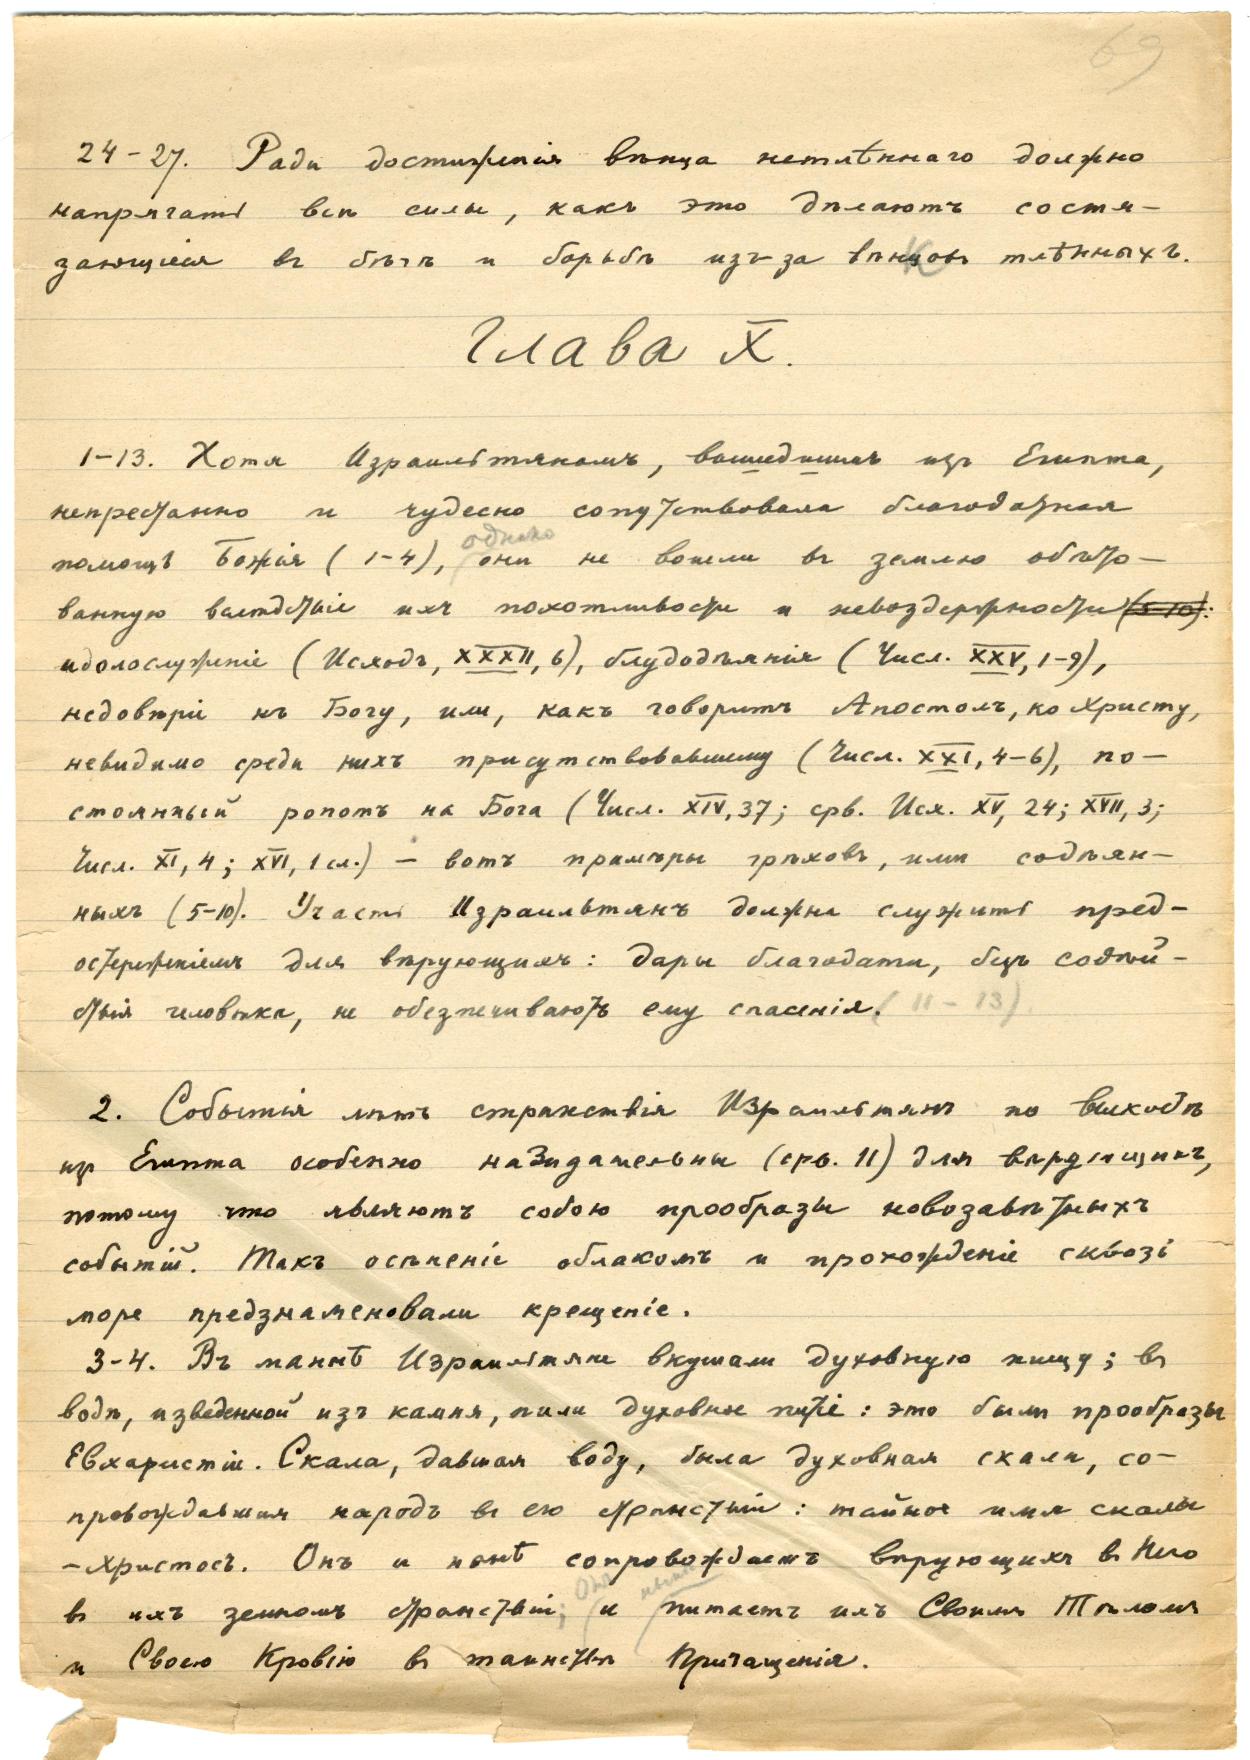 69
24-27. Ради достиженія вѣнца нетлѣннаго должно
напрягать всѣ силы, какъ это дѣлаютъ состя-
зающіеся въ бѣгѣ и борьбѣ изъ-за вѣнцовъ тлѣнныхъ.
Глава X.
1-13. Хотя Израильтянамъ, вышедшимъ изъ Египта,
непрестанно и чудесно сопутствовала благодатная
однако
помощь Божія (1-4), они не вошли въ землю обѣто-
ванную вслѣдствіе ихъ похотливости и невоздержности (5-10):
идолослуженіе (Исходъ, XXXII, 6), блудодѣянія (Числ. XXV, 1-9),
недовѣріе къ Богу, или, какъ говоритъ Апостолъ, ко Христу,
невидимо среди нихъ присутствовавшему (Числ. XXI, 4-6), по-
стоянный ропотъ на Бога (Числ. XIV, 37; срв. Исх. XV, 24; XVII, 3;
Числ. XI, 4; XVI, 1 сл.) - вотъ примѣры грѣховъ, ими содѣян-
ныхъ (5-10). Участь Израильтянъ должна служить пред-
остереженіемъ для вѣрующихъ: дары благодати, безъ содѣй-
ствія человѣка, не обезпечиваютъ ему спасенія. (11-13)
2. Событія лѣтъ странствія Израильтянъ по выходѣ
изъ Египта особенно назидательны (срв. 11) для вѣрующихъ,
потому что являютъ собою прообразы новозавѣтныхъ
событій. Такъ осѣненіе облакомъ и прохожденіе сквозь
море предзнаменовали крещеніе.
3-4. Въ маннѣ Израильтяне вкушали духовную пищу; въ
водѣ, изведенной изъ камня, пили духовное питіе: это были прообразы
Евхаристіи. Скала, давшая воду, была духовная скала, со-
провождавшая народъ въ его странствіи: тайное имя скалы
-Христосъ. Онъ и нынѣ сопровождаетъ вѣрующихъ въ Него
Онъ нынѣ
въ ихъ земномъ странствіи; и питаетъ ихъ Своимъ Тѣломъ
и Своею Кровію въ таинствѣ Причащенія.